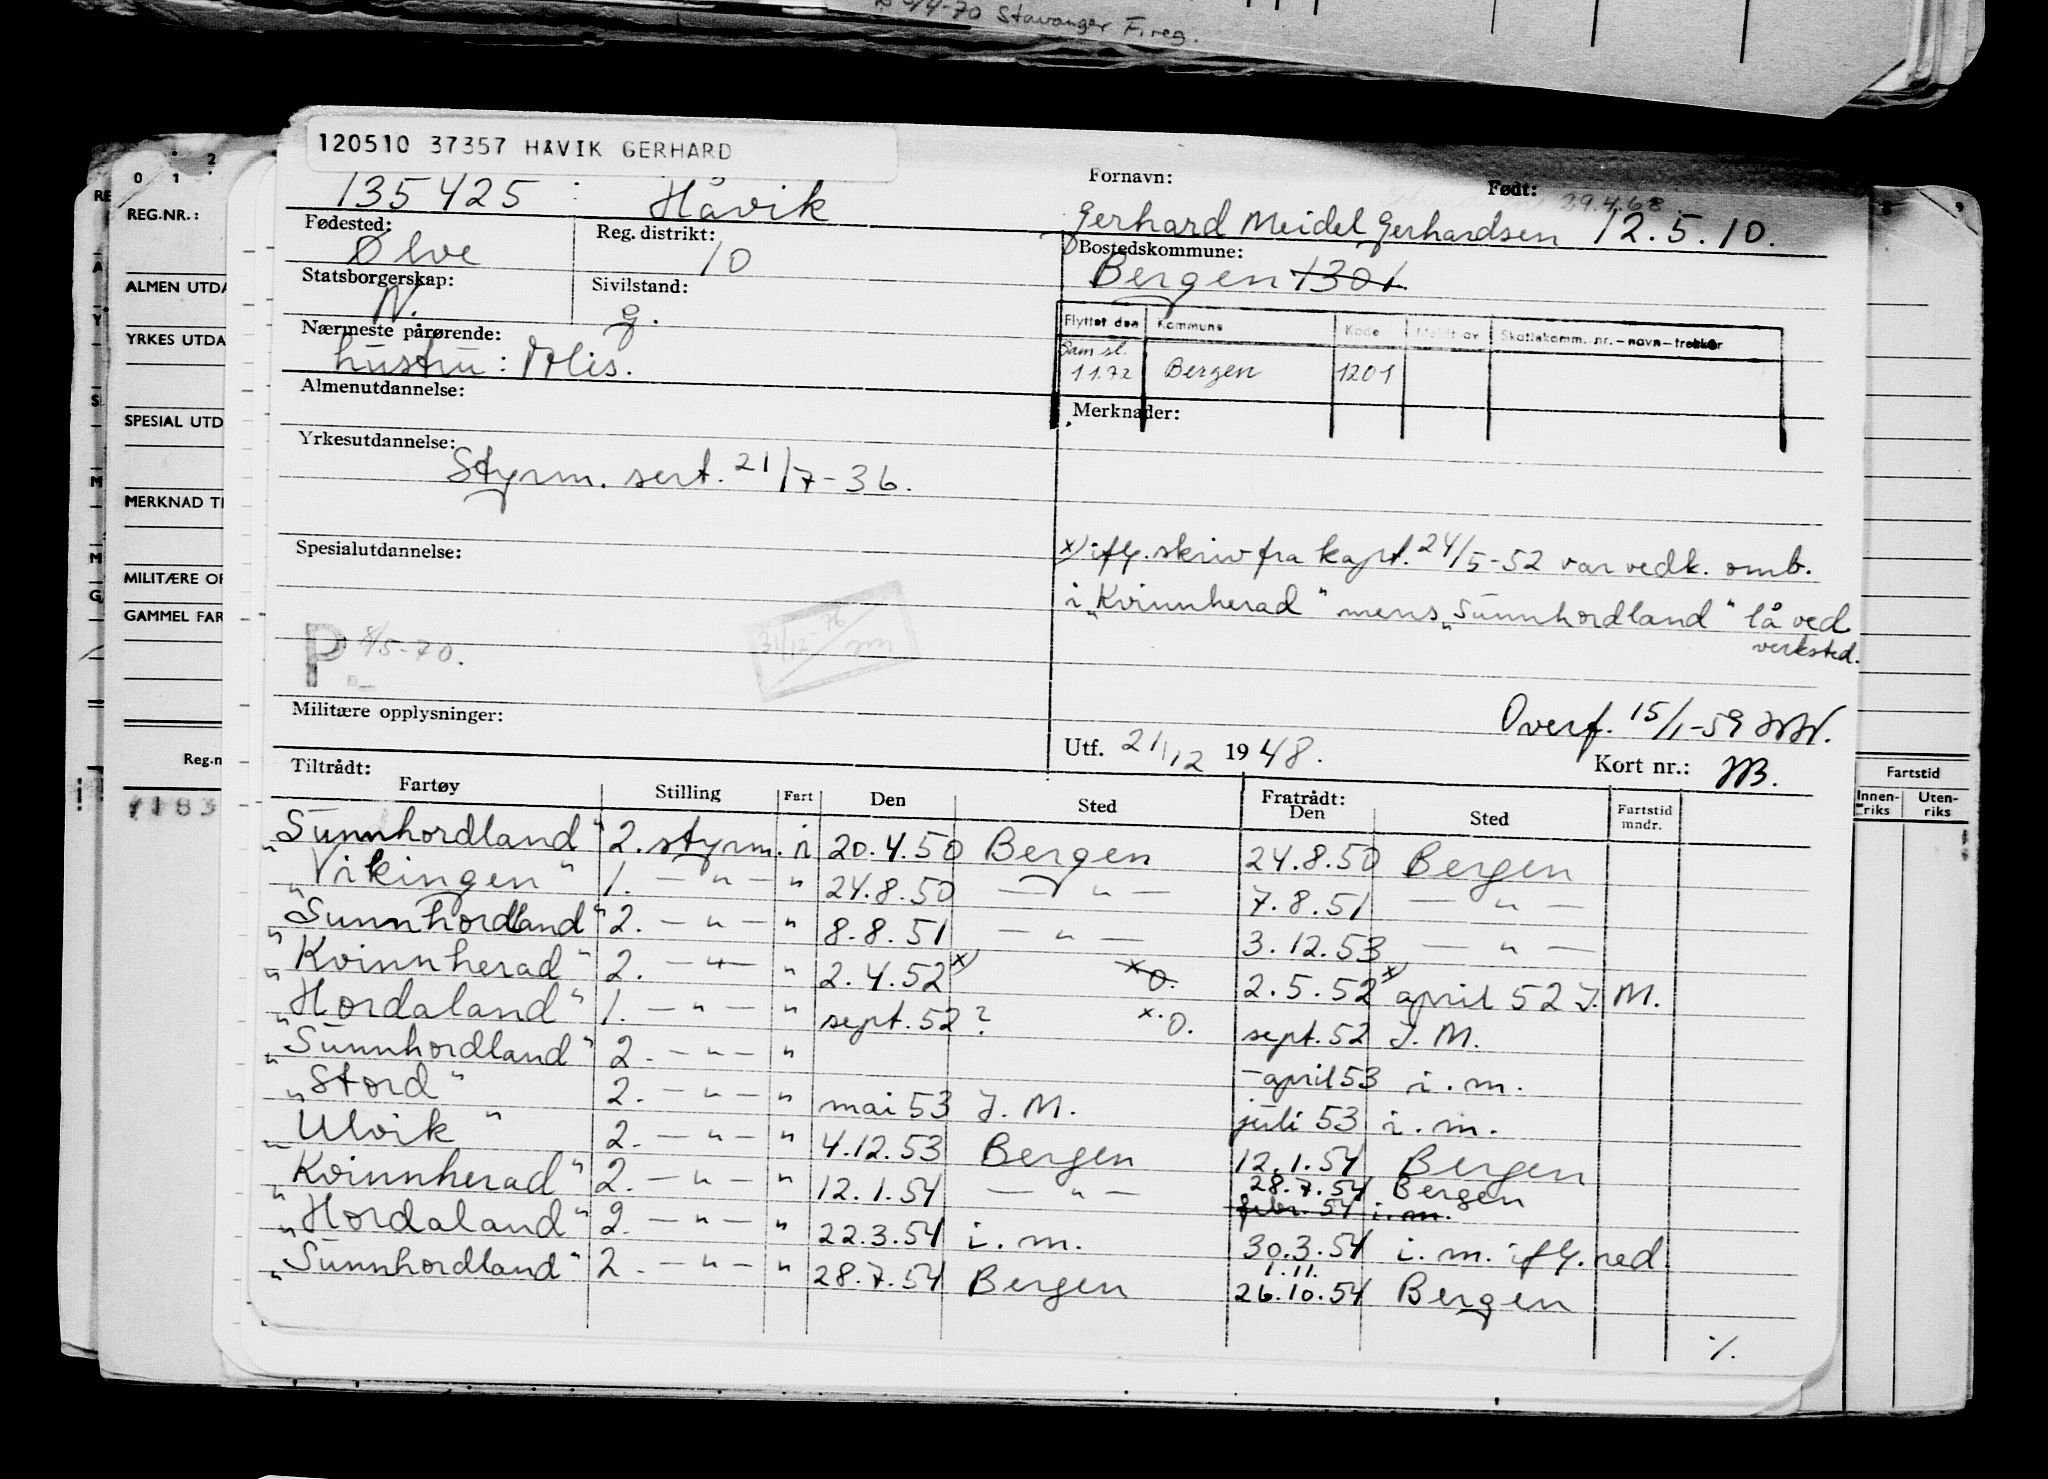 4-70 Stavanger F.reg.
120510 37357 HÅVIK GERHARD
0 1 2
135425 Håvik
Fornavn: Født: 29.4.68
Gerhard Meidel Gerhardsen 12.5.10.
REG.NR.:
Fødested: Reg. distrikt: Bostedskommune:
Ølve 10 Bergen 1301
Statsborgerskap: Sivilstand:
N. g.
ALMEN UTDA
Flyttet den Kommune Kode Meldt av Skattekomm. nr.-navn-trekker
Nærmeste pårørende:
hustru:
YRKES UTDA
Sam.sl.
1.1.72 Bergen 1201
Almenutdannelse: Merknader:
SPESIAL UTD
Yrkesutdannelse:
Styrm. sert. 21/7-36.
MERKNAD TI
Spesialutdannelse:
x) iflg. skriv fra kapt. 24/5-52 var vedk. omb.
MILITÆRE OP
i "Kvinnherad" mens "Sunnhordland" lå ved
verksted.
GAMMEL FAR
P 8/5-70.
31/12-76
Militære opplysninger:
Overf. 15/1-59
Utf. 21/12 1948.
Kort nr.:
Reg.n
Fartstid
Innen-riks Uten-riks
Tiltrådt: Fratrådt:
Fartøy Stilling Fart Den Sted Den Sted Fartstid mndr.
"Sunnhordland" 2. styrm. i 20.4.50 Bergen 24.8.50 Bergen
"Vikingen" 1. — " — " 24.8.50 — " — 7.8.51 — " —
"Sunnhordland" 2. — " — " 8.8.51 — " — 3.12.53 — " —
"Kvinnherad" 2. — " — " 2.4.52 x) x O. 2.5.52 x) april 52 I.M.
"Hordaland" 1. — " — " sept. 52? x. O. sept. 52 I.M.
"Sunnhordland" 2. — " — " — april 53 i.m.
"Stord" 2. — " — " mai 53 I.M. juli 53 i.m.
"Ulvik" 2. — " — " 4.12.53 Bergen 12.1.54 Bergen
"Kvinnherad" 2. — " — " 12.1.54 — " — 28.7.54 Bergen
febr. 54 i.m.
"Hordaland" 2. — " — " 22.3.54 i.m. 30.3.54 i.m. iflg. red.
1.11.
"Sunnhordland" 2. — " — " 28.7.54 Bergen 26.10.54 Bergen
./.